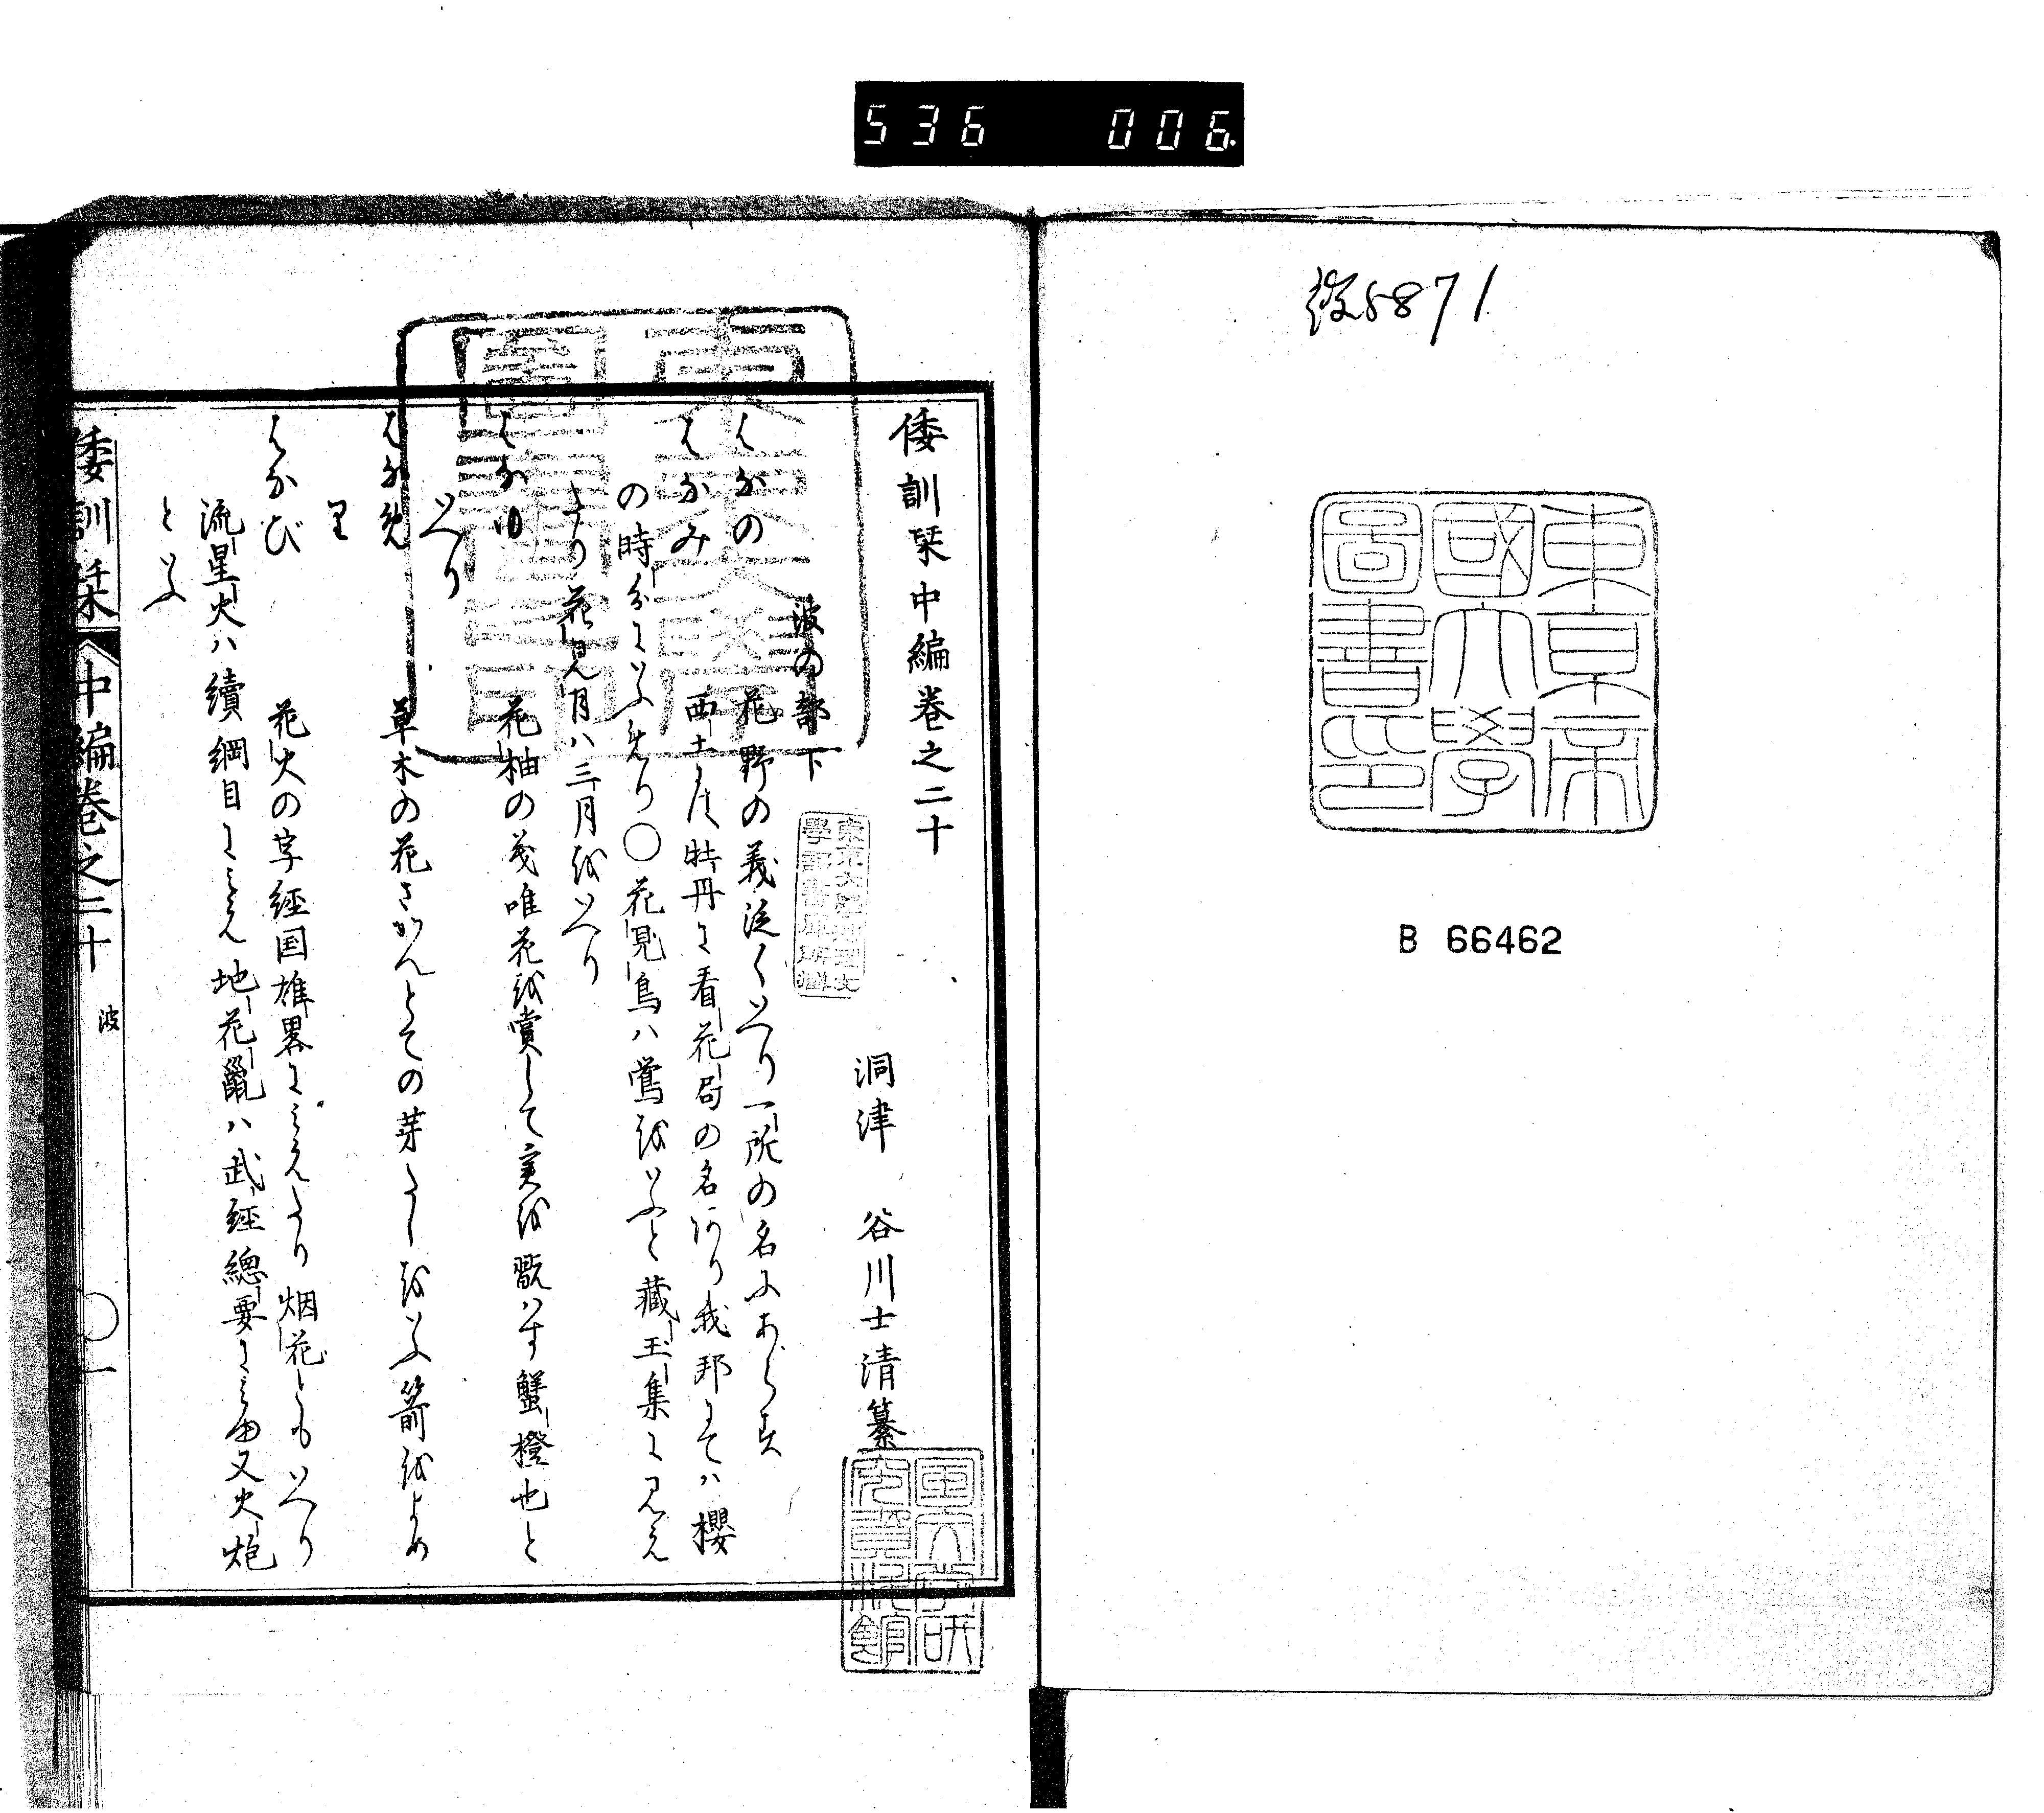 536 006.
綴5871
東京帝
國大學
圖書印
B 66462
倭訓栞中編巻之二十
洞津 谷川士清纂
波の部下
はなの 花野の義詠くいへり一所の名にあらす
はなみ 西土にハ牡丹に看花局の名あり我邦にてハ櫻
の時分にいふめり○花見鳥ハ鶯をいふと藏玉集に見え
たり花見月ハ三月をいへり
はなゆ 花柚の義唯花を賞して実を翫はす蟹橙也と
いへり
はなめ 草木の花さかんとての芽たしをいふ箭をよめ
り
はなび 花火の字経国雄畧にみえたり烟花ともいへり
流星火ハ續綱目にみえ地花鼠ハ武經總要にみゆ又火炮
といふ
倭訓栞 中編巻之二十 波 ○一